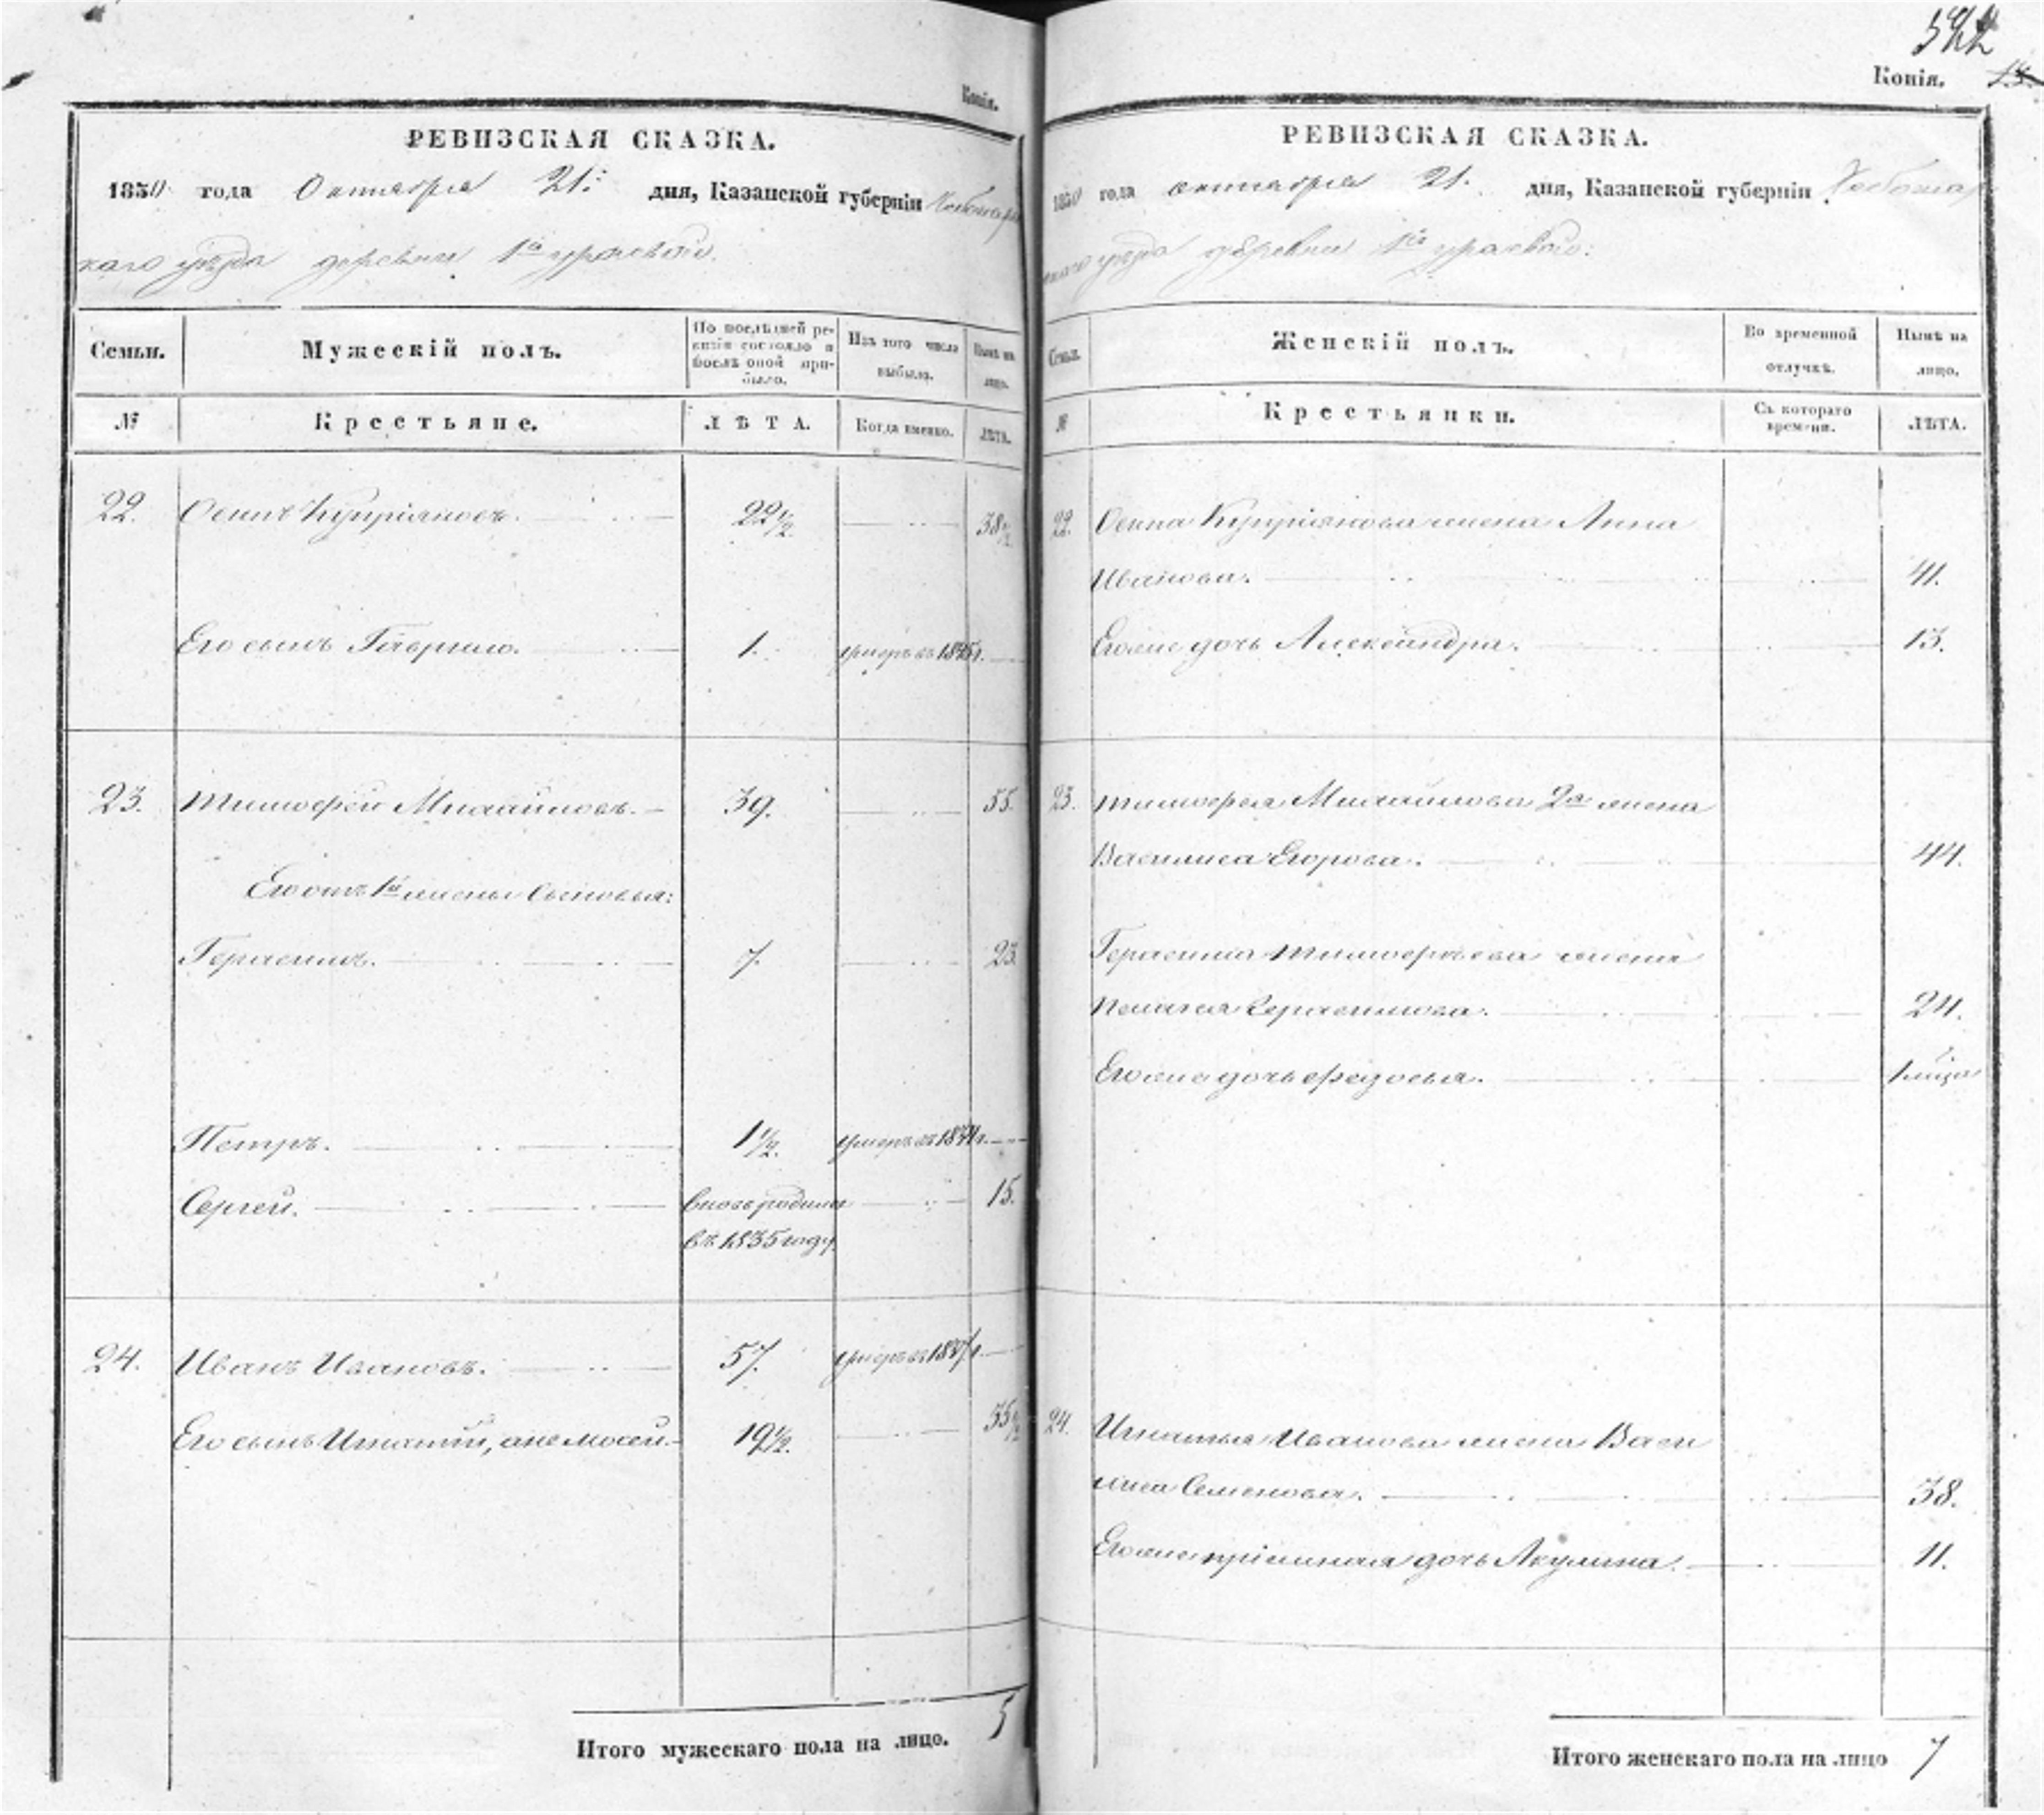 Копія.
РЕВИЗСКАЯ СКАЗКА.
1850 года Октября 21: дня, Казанской губерніи Чебоксар
скаго уѣзда деревни 1й
Семьи.
Мужескій полъ.
По послѣдней ре-
візіи состояло и
послѣ оной при-
было.
Изъ того числа
выбыло.
Нынѣ на
лицо.
№
Крестьяне.
ЛѢТА.
Когда именно.
ЛѢТА.
22. Осипъ Купріяновъ. 22½. 38½
Его сынъ Гаврило. 1. умеръ въ 1845г.
23. Тимофей Михайловъ. 39. 55.
Его отъ 1й жены сыновья:
Герасимъ. 7. 23.
Петръ. 1½. умеръ въ 1844г.
Сергей. вновь родился 15.
въ 1835 году
24. Иванъ Ивановъ. 57. умеръ въ
Его сынъ Игнатій, онже Мосей. 19½. 35½
Итого мужескаго пола на лицо. 5
Копія.
РЕВИЗСКАЯ СКАЗКА.
1850 года октября 21. дня, Казанской губерніи Чебоксар
скаго уѣзда деревни 1й
Семьи.
Женскій полъ.
Во временной
отлучкѣ.
Нынѣ на
лицо.
№
Крестьянки.
Съ котораго
времени.
ЛѢТА.
22. Осипа Купріянова жена Анна
Иванова. 41.
Егоже дочь Александра. 13.
23. Тимофея Михайлова 2я жена
Василиса Егорова. 44.
Герасима Тимофѣева жена
Пелагея Герасимова. 24.
Егоже дочь Федосья.
24. Игнатья Иванова жена Васи
лиса Семенова. 38.
Егоже пріемная дочь Акулина. 11.
Итого женскаго пола на лицо 7